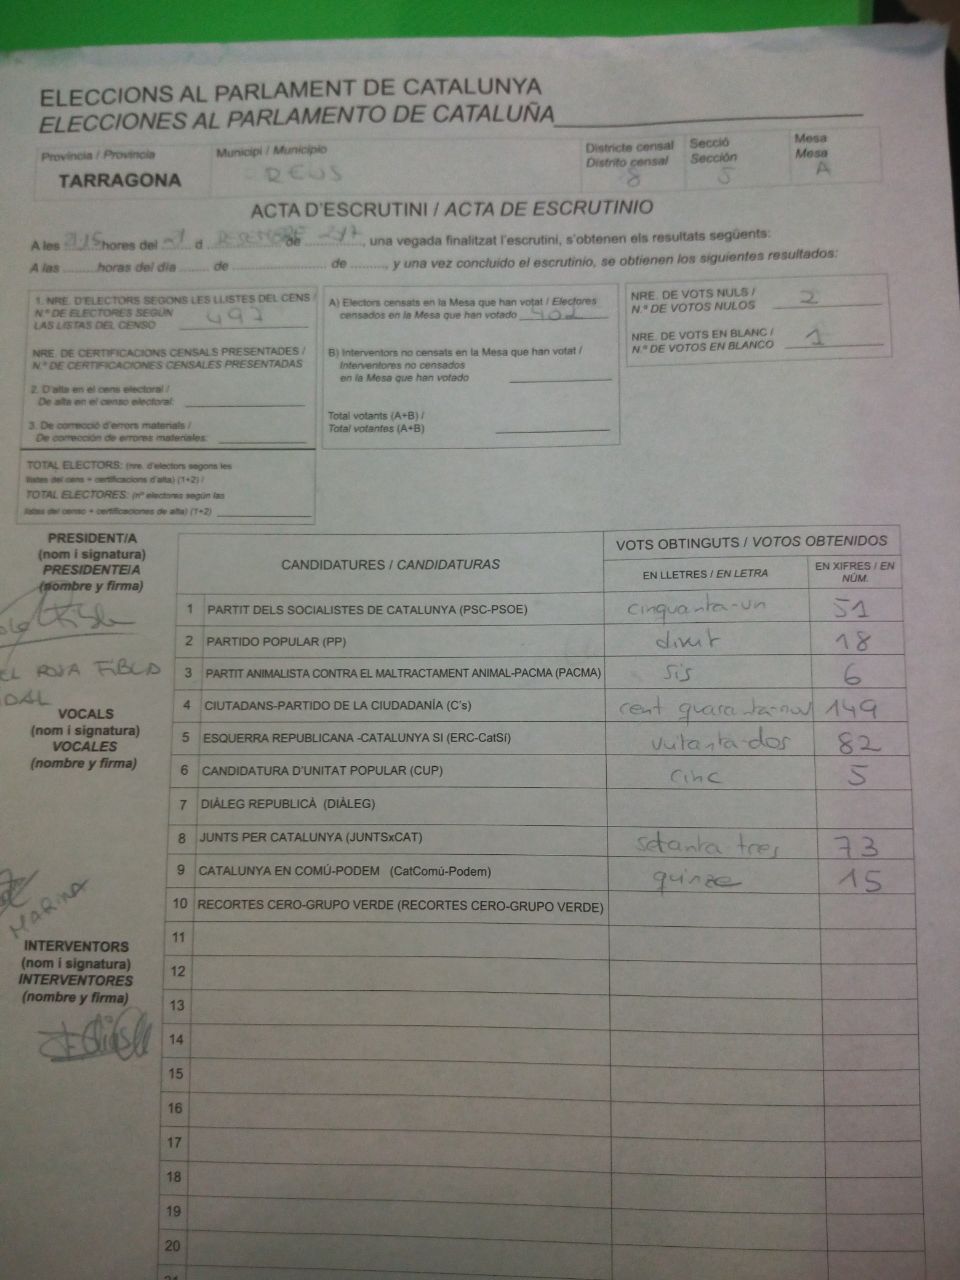 ELECCIONS AL PARLAMENT DE CATALUNYA
ELECCIONES AL PARLAMENTO DE CATALUÑA
Província / Provincia
TARRAGONA
Municipi / Municipio
REUS
Districte censal
Distrito censal
8
Secció
Sección
5
Mesa
Mesa
A
ACTA D'ESCRUTINI / ACTA DE ESCRUTINIO
A les hores del d de , una vegada finalitzat l'escrutini, s'obtenen els resultats següents:
A las horas del día de de , y una vez concluido el escrutinio, se obtienen los siguientes resultados:
1. NRE. D'ELECTORS SEGONS LES LLISTES DEL CENS /
N.º DE ELECTORES SEGÚN
LAS LISTAS DEL CENSO 497
NRE. DE CERTIFICACIONS CENSALS PRESENTADES /
N.º DE CERTIFICACIONES CENSALES PRESENTADAS
2. D'alta en el cens electoral /
De alta en el censo electoral:
3. De correcció d'errors materials /
De corrección de errores materiales:
TOTAL ELECTORS: (nre. d'electors segons les
llistes del cens + certificacions d'alta) (1+2) /
TOTAL ELECTORES: (nº electores según las
listas del censo + certificaciones de alta) (1+2)
A) Electors censats en la Mesa que han votat / Electores
censados en la Mesa que han votado 402
B) Interventors no censats en la Mesa que han votat /
Interventores no censados
en la Mesa que han votado
Total votants (A+B) /
Total votantes (A+B)
NRE. DE VOTS NULS /
N.º DE VOTOS NULOS 2
NRE. DE VOTS EN BLANC /
N.º DE VOTOS EN BLANCO 1
PRESIDENT/A
(nom i signatura)
PRESIDENTE/A
(nombre y firma)
VOCALS
(nom i signatura)
VOCALES
(nombre y firma)
MARINA
INTERVENTORS
(nom i signatura)
INTERVENTORES
(nombre y firma)
CANDIDATURES / CANDIDATURAS
VOTS OBTINGUTS / VOTOS OBTENIDOS
EN LLETRES / EN LETRA
EN XIFRES / EN
NÚM.
1 PARTIT DELS SOCIALISTES DE CATALUNYA (PSC-PSOE) cinquanta-un 51
2 PARTIDO POPULAR (PP) divuit 18
3 PARTIT ANIMALISTA CONTRA EL MALTRACTAMENT ANIMAL-PACMA (PACMA) sis 6
4 CIUTADANS-PARTIDO DE LA CIUDADANÍA (C's) cent quaranta-nou 149
5 ESQUERRA REPUBLICANA -CATALUNYA SI (ERC-CatSí) vuitanta-dos 82
6 CANDIDATURA D'UNITAT POPULAR (CUP) cinc 5
7 DIÀLEG REPUBLICÀ (DIÀLEG)
8 JUNTS PER CATALUNYA (JUNTSxCAT) setanta-tres 73
9 CATALUNYA EN COMÚ-PODEM (CatComú-Podem) quinze 15
10 RECORTES CERO-GRUPO VERDE (RECORTES CERO-GRUPO VERDE)
11
12
13
14
15
16
17
18
19
20